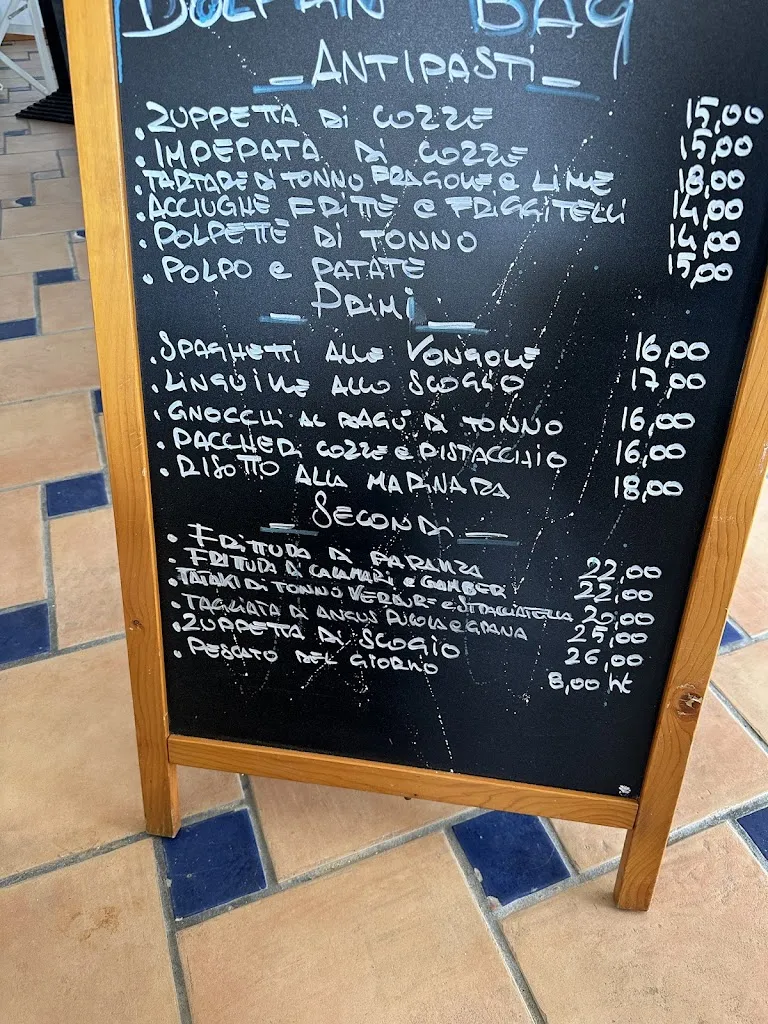 DOLPHIN BAY
ANTIPASTI
• ZUPPETTA Di COZZE 15,00
• IMPEPATA Di COZZE 15,00
• TARTARE Di TONNO FRAGOLE e LIME 18,00
• ACCIUGHE FRITTE e FRIGGITELLI 14,00
• POLPETTE Di TONNO 14,00
• POLPO e PATATE 15,00
PRIMi
• SPAGHETTI ALLE VONGOLE 16,00
• LINGUINE ALLO SCOGLIO 17,00
• GNOCCHI AL RAGÙ Di TONNO 16,00
• PACCHERi COZZE e PISTACCHIO 16,00
• RISOTTO ALLA MARINARA 18,00
SECONDi
• FRITTURA Di PARANZA 22,00
• FRITTURA Di CALAMARi e GAMBERi 22,00
• TATAKi Di TONNO VERDURE e STRACCIATELLA 20,00
• TAGLIATA Di ANGUS RUCOLA e GRANA 25,00
• ZUPPETTA Di SCOGIO 26,00
• PESCATO DEL GIORNO 8,00 ht